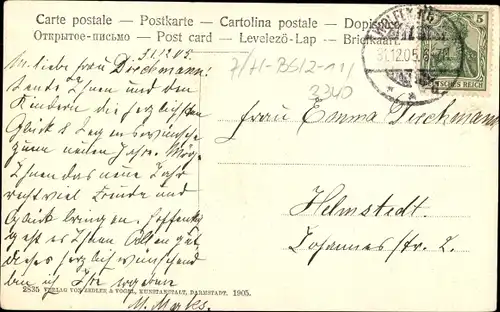 Carte postale — Postkarte — Cartolina postale — Dopisnice
Открытое-письмо — Post card — Levelező-Lap — Briefkaart.
31.12.05.
5
DEUTSCHES REICH
31.12.05.6-7N.
7/H-BS/2-11/
3340
liebe Frau Dieckmann!
Sende Ihnen und den
Kindern die herzlichsten
Glück & Segenswünsche
zum neuen Jahre. Möge
Ihnen das neue Jahr
recht viel Freude und
Glück bringen. Hoffentlich
geht es Ihnen Allen gut,
dieses herzlich wünschend
bin ich Ihre ergebene
M. Marks.
Frau Emma Dieckmann
Helmstedt.
Johannesstr. 2.
2835 VERLAG VON ZEDLER & VOGEL, KUNSTANSTALT, DARMSTADT. 1905.